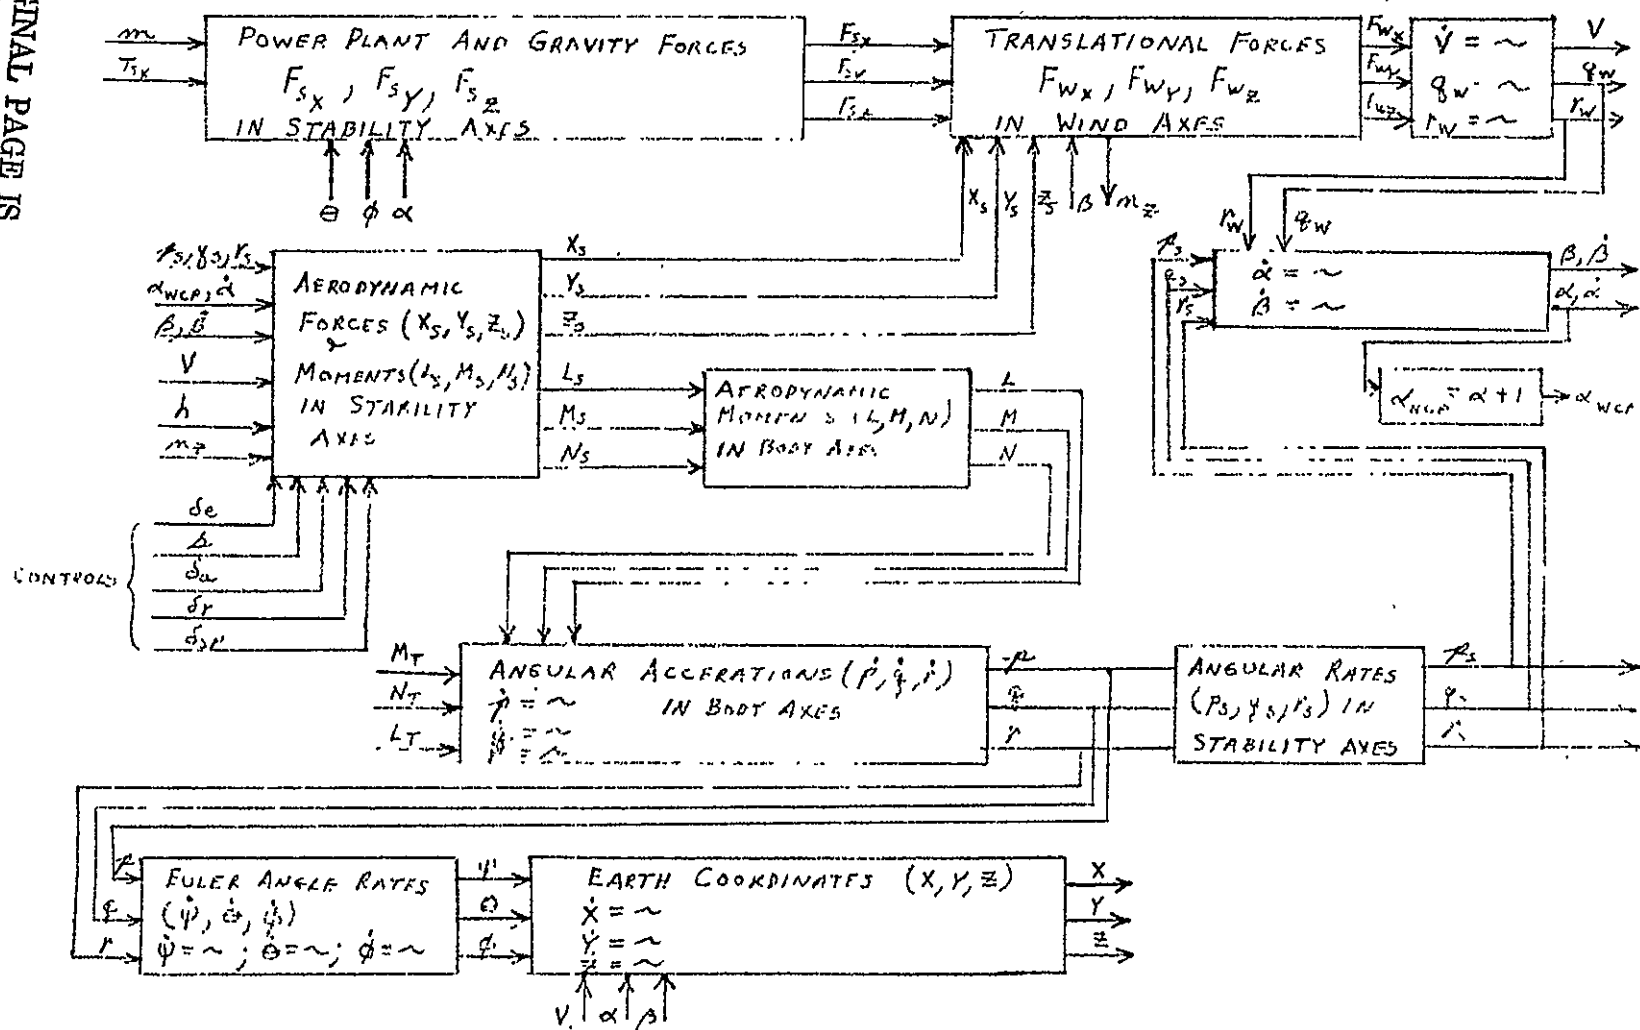 GINAL PAGE IS
m
POWER PLANT AND GRAVITY FORCES
F_Sx, F_SY, F_SZ
IN STABILITY AXES
T_SX
θ φ α
F_Sx
TRANSLATIONAL FORCES
F_Wx, F_WY, F_WZ
IN WIND AXES
F_Wx
F_WY
V̇ = ~
q_W = ~
r_W = ~
V
q_W
r_W
X_S Y_S Z_S β n_Z
r_W q_W
α̇ = ~
β̇ = ~
β, β̇
α, α̇
p_S
r_S
= α + 1
α_WCP
α_WCP, α̇
β, β̇
V
h
AERODYNAMIC
FORCES (X_S, Y_S, Z_S)
&
MOMENTS (L_S, M_S, N_S)
IN STABILITY
AXES
X_S
Y_S
Z_S
L_S
M_S
N_S
AERODYNAMIC
(L, M, N)
IN BODY AXES
L
M
N
CONTROLS
δe
δa
δr
M_T
N_T
L_T
ANGULAR ACCERATIONS (ṗ, q̇, ṙ)
IN BODY AXES
ṗ = ~
= ~
= ~
p
q
r
ANGULAR RATES
(p_S, q_S, r_S) IN
STABILITY AXES
p_S
p
q
r
EULER ANGLE RATES
ψ̇ = ~ ; θ̇ = ~ ; φ̇ = ~
ψ
θ
φ
EARTH COORDINATES (X, Y, Z)
Ẋ = ~
Ẏ = ~
Ż = ~
X
Y
Z
V α β